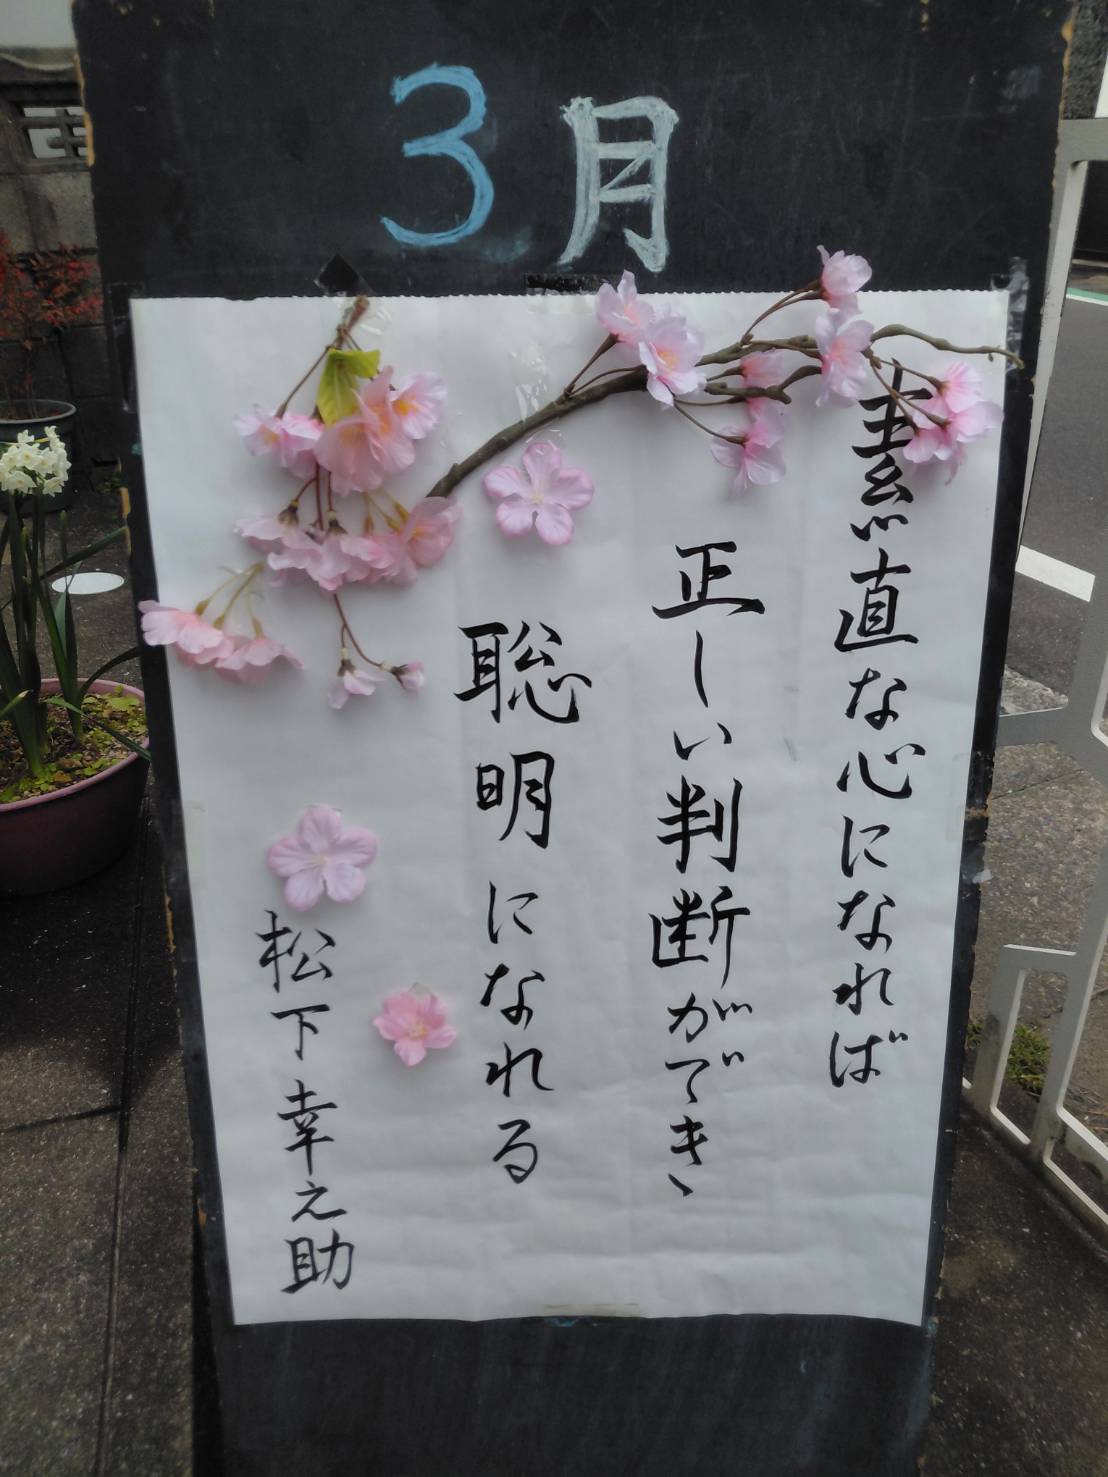 3月
素直な心になれば
正しい判断ができ、
聡明になれる
松下幸之助